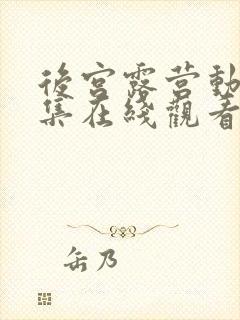 後宮露营動
集在綫觀看
缶乃